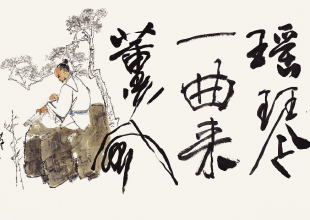 瑶琴
一曲来
薰风